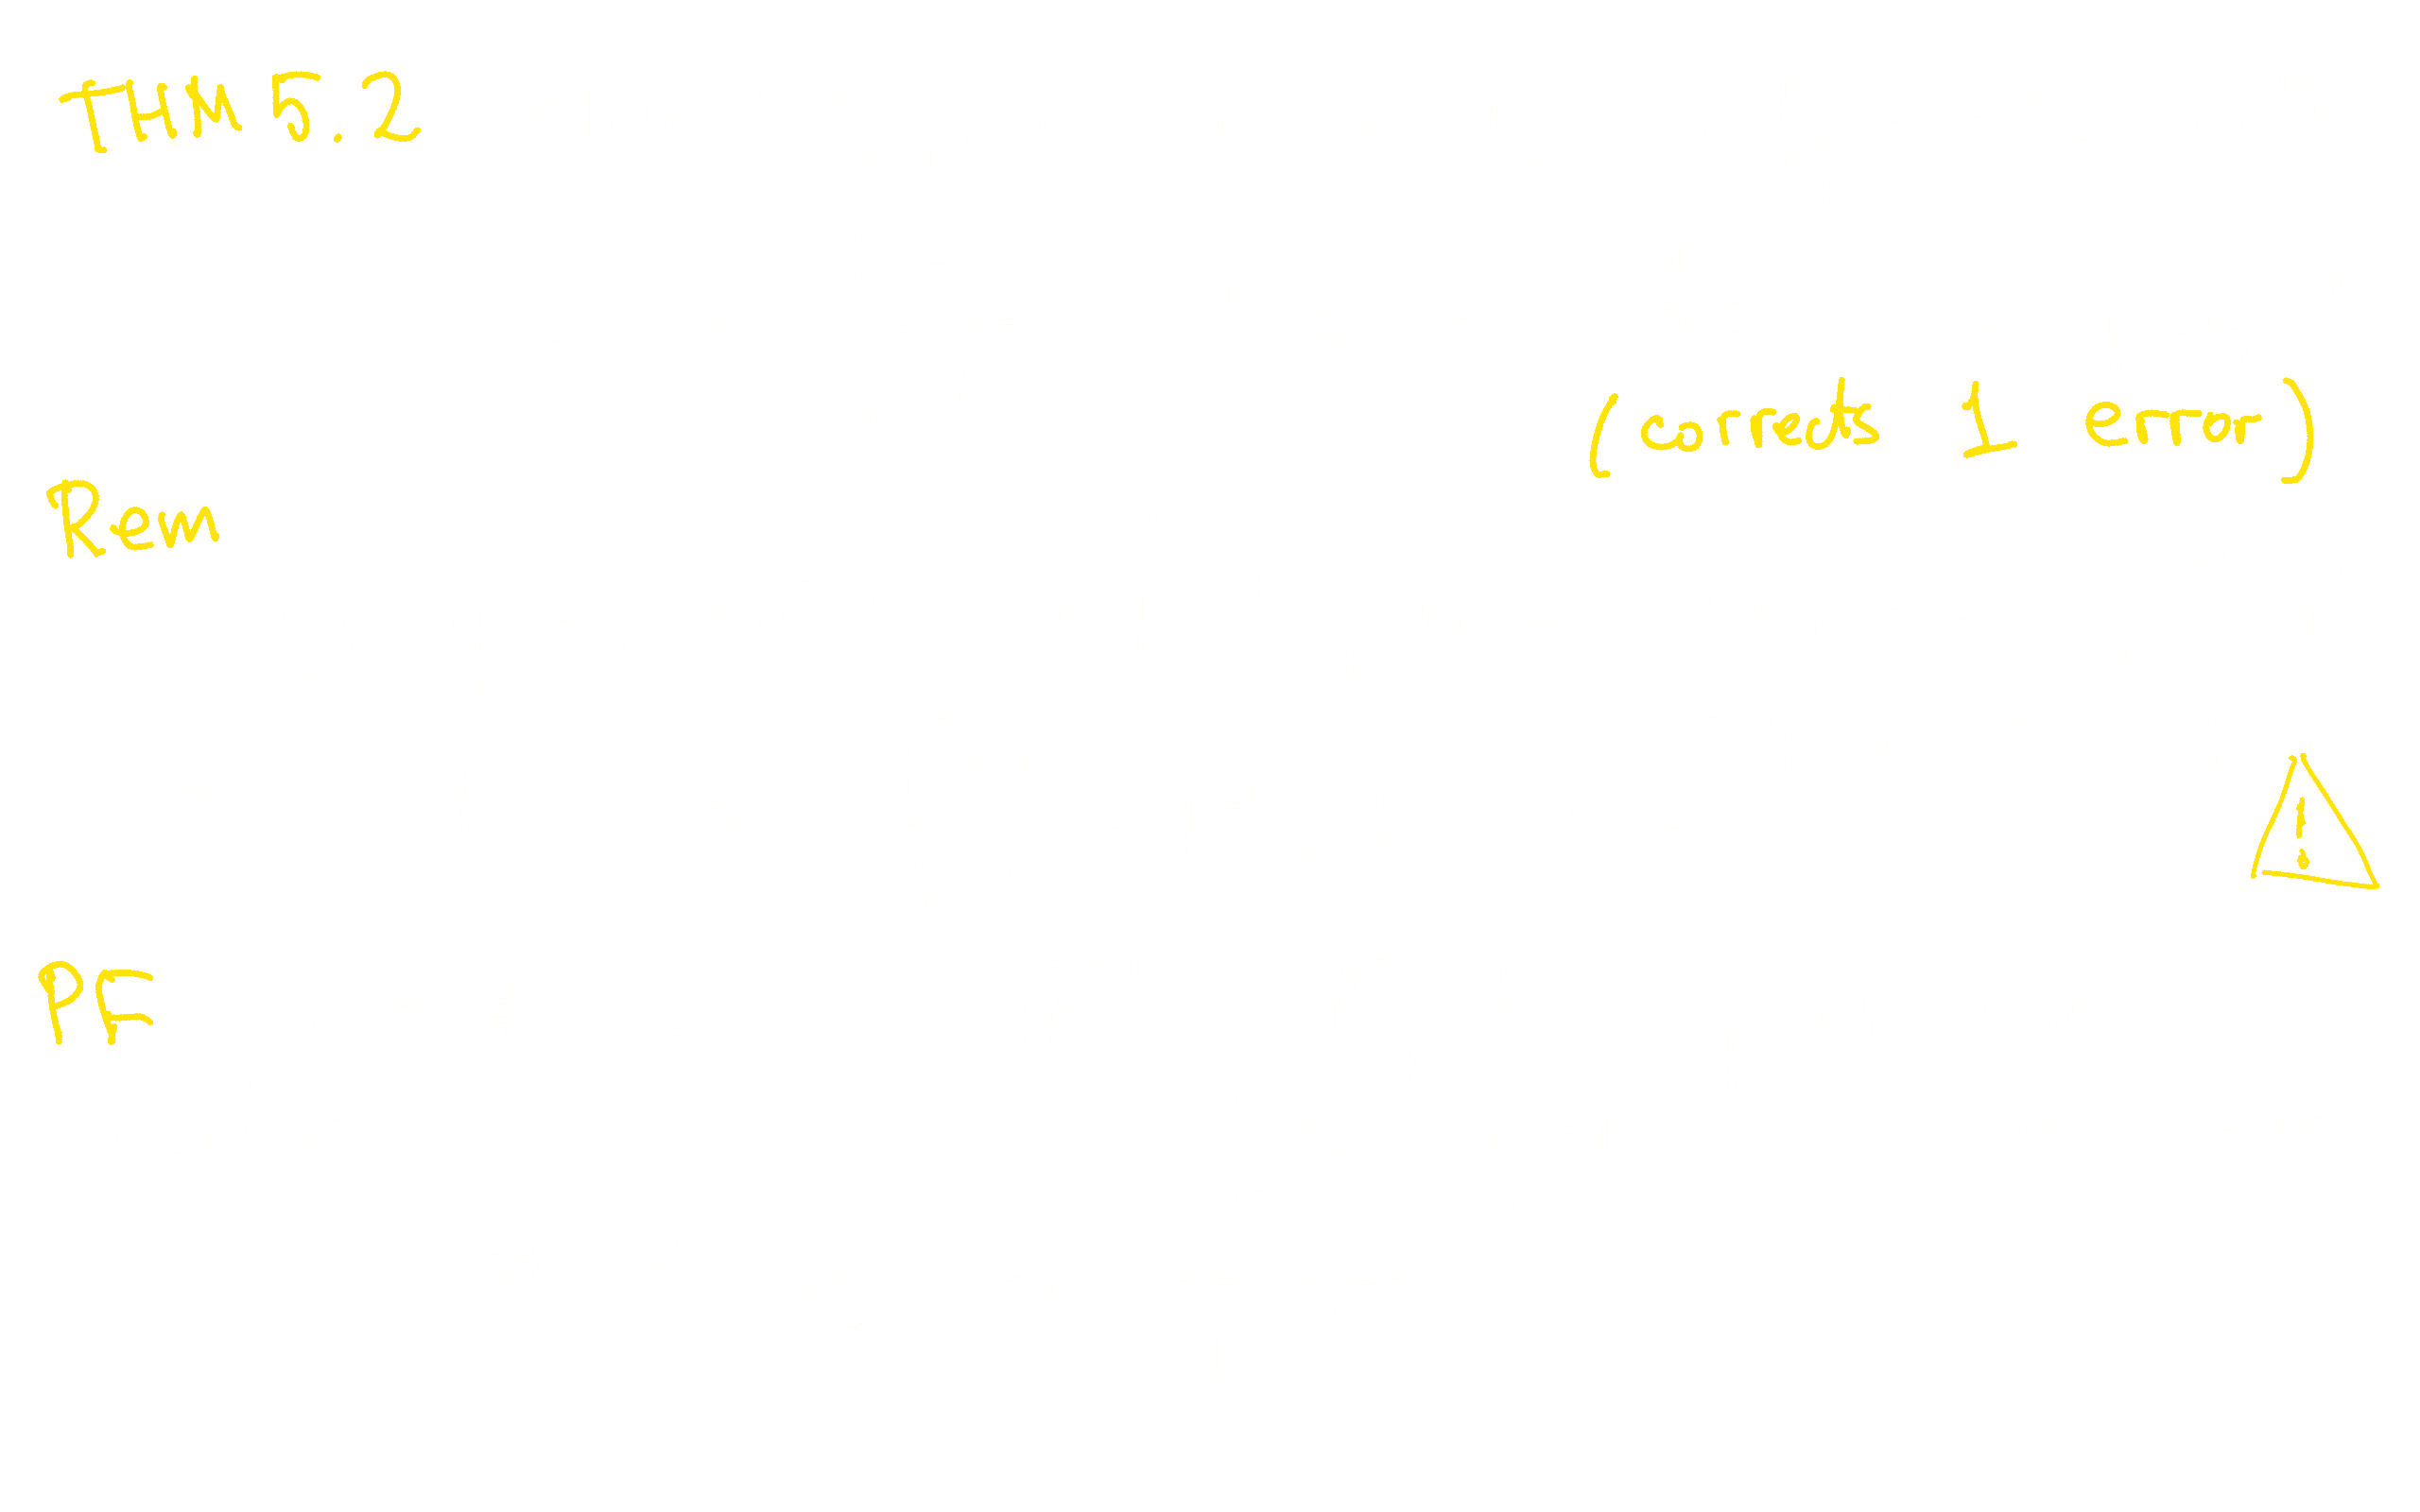 THM 5.2
(corrects 1 error)
Rem
!
PF